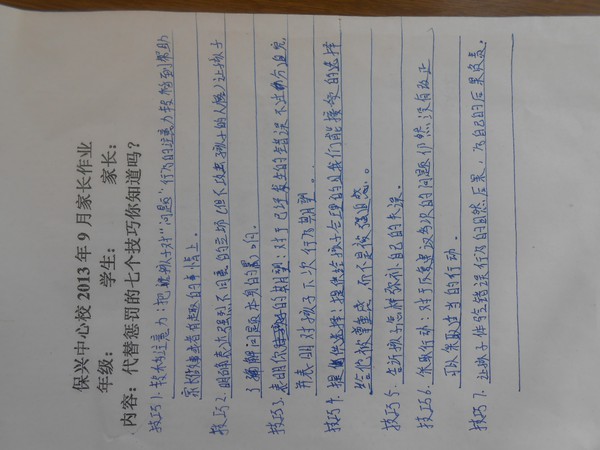 保兴中心校 2013 年 9 月家长作业
年级： 学生： 家长：
内容：代替惩罚的七个技巧你知道吗？
技巧1. 转移注意力：把孩子对“问题”行为的注意力转移到帮助
家长做或者有趣的事情上。
技巧2. 明确表达强烈不同意的立场（但不攻击孩子的人格）让孩子
了解问题本身的影响。
技巧3. 表明你的期望：对于已经发生的错误不过分追究，
并表明对孩子下次行为期望。
技巧4. 提供选择：提供给孩子合理的且我们能接受的选择
给他被尊重感，而不是被强迫感。
技巧5. 告诉孩子怎样弥补自己的失误。
技巧6. 采取行动：对于反复重议多次的问题仍然没有改正
可以采取适当的行动。
技巧7. 让孩子体验错误行为的自然后果，为自己的后果负责。